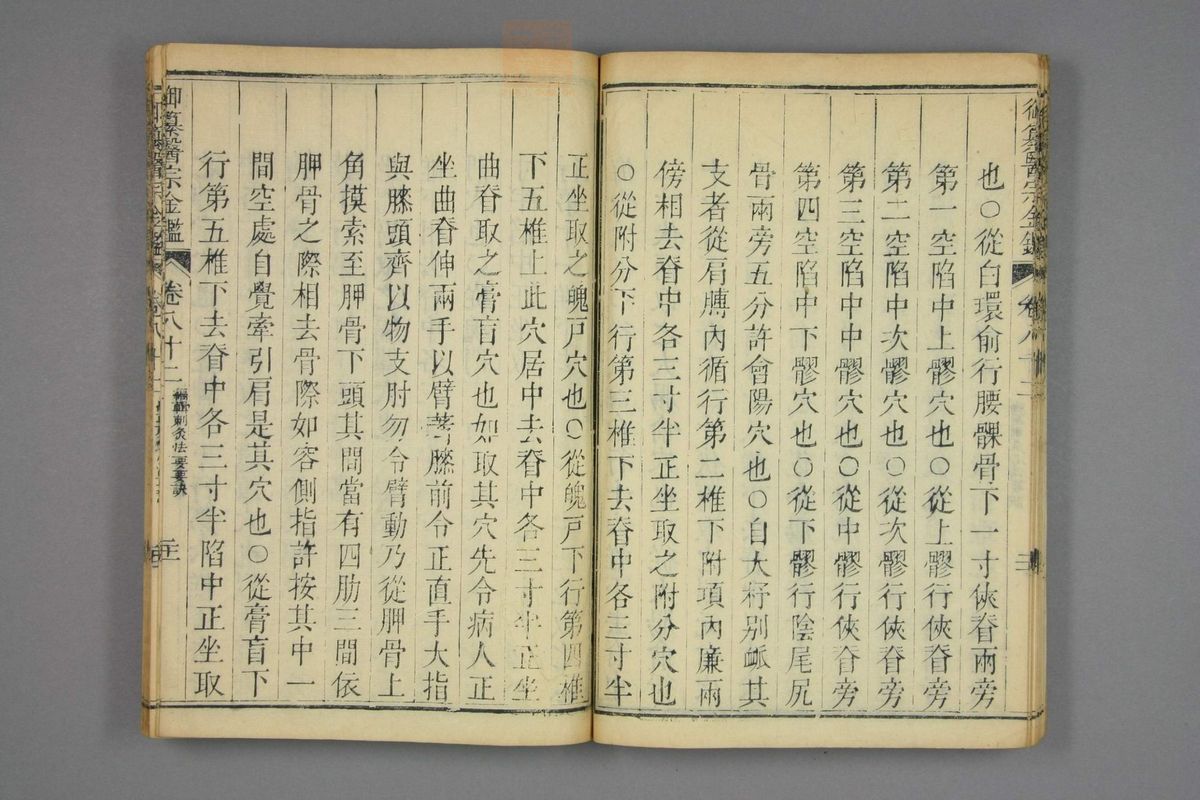 御纂醫宗金鑑
卷八十二
也○從白環俞行腰髁骨下一寸俠脊兩旁
第一空陷中上髎穴也○從上髎行俠脊旁
第二空陷中次髎穴也○從次髎行俠脊旁
第三空陷中中髎穴也○從中髎行俠脊旁
第四空陷中下髎穴也○從下髎行陰尾尻
骨兩旁五分許會陽穴也○自大杼別衇其
支者從肩膊內循行第二椎下附項內廉兩
傍相去脊中各三寸半正坐取之附分穴也
○從附分下行第三椎下去脊中各三寸半
正坐取之魄戸穴也○從魄戸下行第四椎
下五椎上此穴居中去脊中各三寸半正坐
曲脊取之膏盲穴也如取其穴先令病人正
坐曲脊伸兩手以臂著膝前令正直手大指
與膝頭齊以物支肘勿令臂動乃從胛骨上
角摸索至胛骨下頭其間當有四肋三間依
胛骨之際相去骨際如容側指許按其中一
間空處自覺牽引肩是其穴也○從膏盲下
行第五椎下去脊中各三寸半陷中正坐取
御纂醫宗金鑑
卷八十二
編輯刺灸法要訣